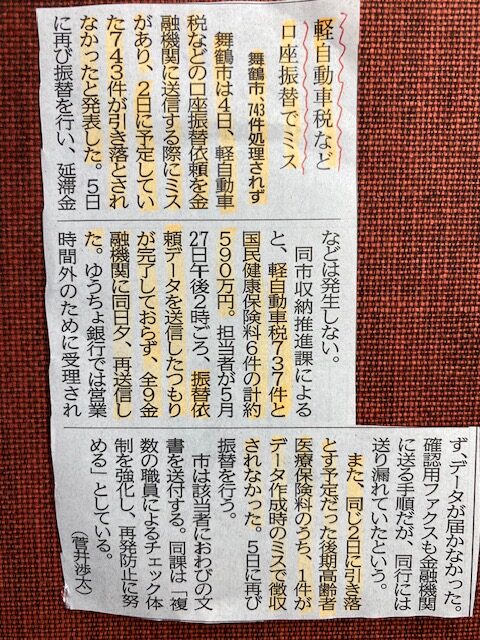 軽自動車税など
口座振替でミス
舞鶴市 743件処理されず
舞鶴市は4日、軽自動車
税などの口座振替依頼を金
融機関に送信する際にミス
があり、2日に予定してい
た743件が引き落とされ
なかったと発表した。5日
に再び振替を行い、延滞金
などは発生しない。
同市収納推進課による
と、軽自動車税737件と
国民健康保険料6件の計約
590万円。担当者が5月
27日午後2時ごろ、振替依
頼データを送信したつもり
が完了しておらず、全9金
融機関に同日夕、再送信し
た。ゆうちょ銀行では営業
時間外のために受理され
ず、データが届かなかった。
確認用ファクスも金融機関
に送る手順だが、同行には
送り漏れていたという。
また、同じ2日に引き落
とす予定だった後期高齢者
医療保険料のうち、1件が
データ作成時のミスで徴収
されなかった。5日に再び
振替を行う。
市は該当者におわびの文
書を送付する。同課は「複
数の職員によるチェック体
制を強化し、再発防止に努
める」としている。
（菅井渉太）